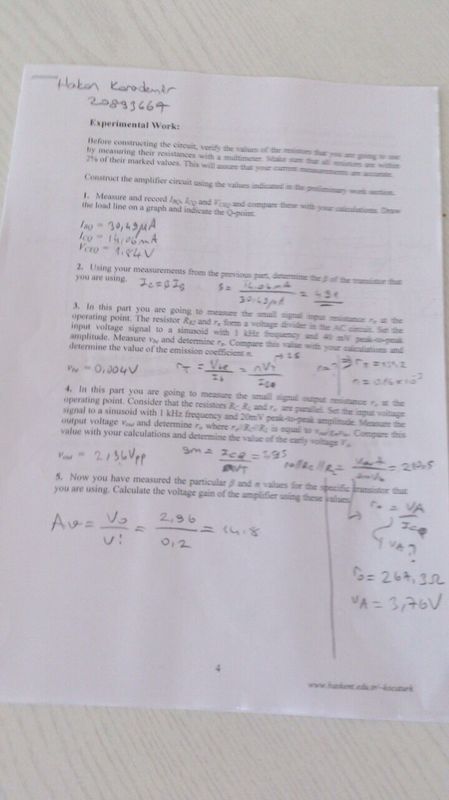 Hakan Karademir
20893664
Experimental Work:
Before constructing the circuit, verify the values of the resistors that you are going to use
by measuring their resistances with a multimeter. Make sure that all resistors are within
2% of their marked values. This will assure that your current measurements are accurate.
Construct the amplifier circuit using the values indicated in the preliminary work section.
1. Measure and record IBQ, ICQ and VCEQ and compare these with your calculations. Draw
the load line on a graph and indicate the Q-point.
IBQ = 30,49µA
ICQ = 14,06mA
VCEQ = 1.84V
2. Using your measurements from the previous part, determine the β of the transistor that
you are using.
3. In this part you are going to measure the small signal input resistance rπ at the
operating point. The resistor and rπ form a voltage divider in the AC circuit. Set the
input voltage signal to a sinusoid with 1 kHz frequency and 40 mV peak-to-peak
amplitude. Measure vIN and determine rπ. Compare this value with your calculations and
determine the value of the emission coefficient n.
vIN = 0,004V
4. In this part you are going to measure the small signal output resistance ro at the
operating point. Consider that the resistors RC RL and ro are parallel. Set the input voltage
signal to a sinusoid with 1 kHz frequency and 20mV peak-to-peak amplitude. Measure the
output voltage vout and determine ro where ro//RC//RL is equal to Compare this
value with your calculations and determine the value of the early voltage VA.
vout = 2,96Vpp
5. Now you have measured the particular β and n values for the specific transistor that
you are using. Calculate the voltage gain of the amplifier using these values.
Av = Vo / Vi = 2,96 / 0,2 = 14.8
ro = VA / ICQ
VA?
ro = 267,3Ω
VA = 3,76V
4